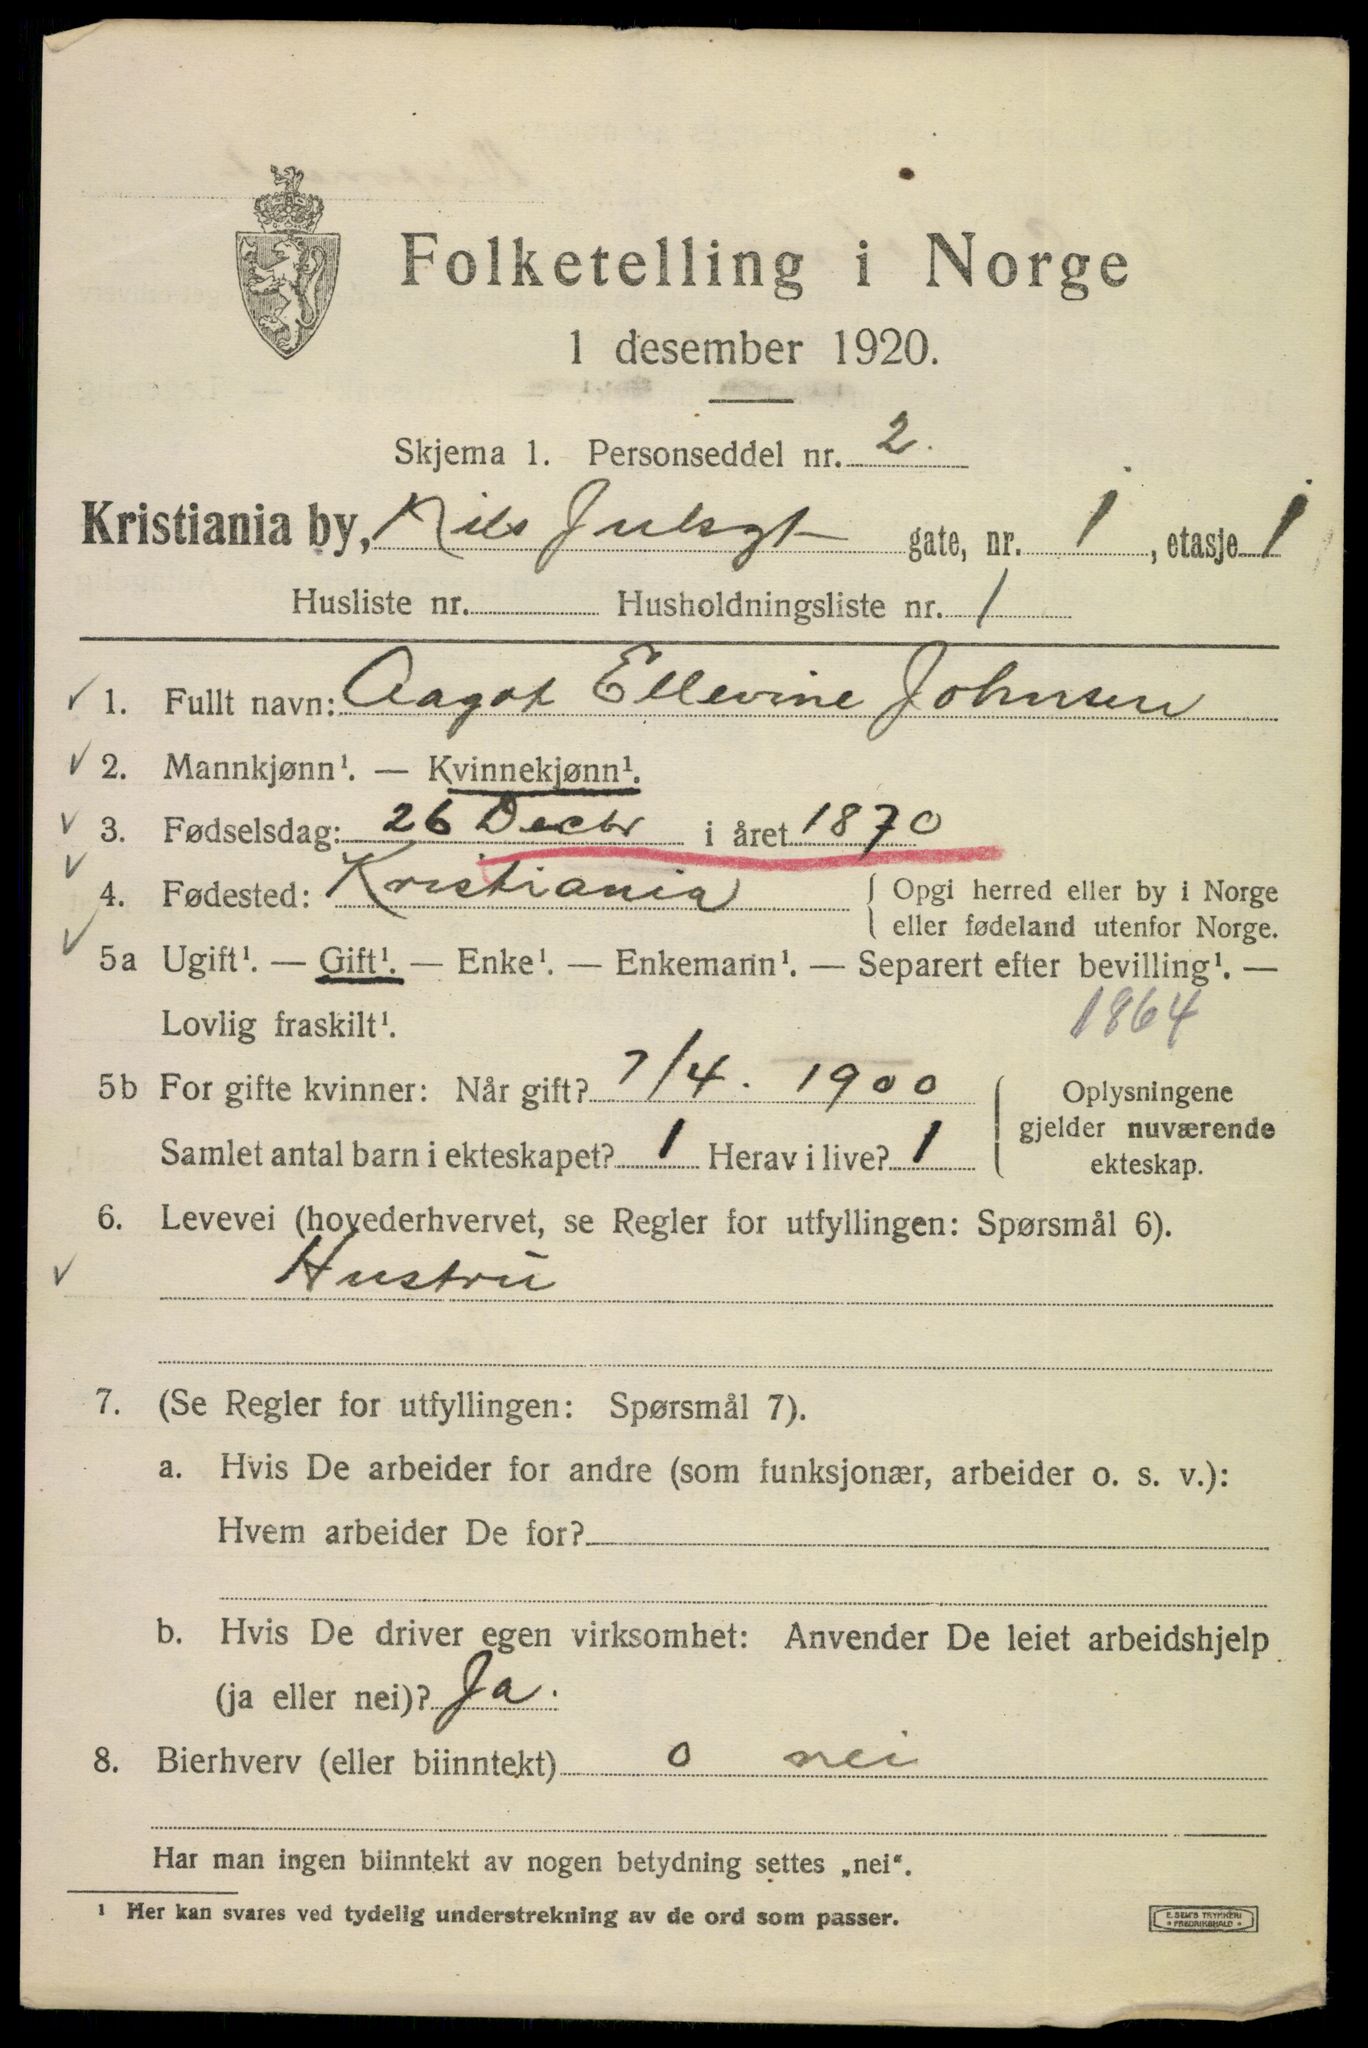 Folketelling i Norge
1 desember 1920.
Skjema 1. Personseddel nr. 2.
Kristiania by, Nils Julsgt gate, nr. 1, etasje 1
Husliste nr. Husholdningsliste nr. 1
1. Fullt navn: Aagot Ellevine Johnsen
2. Mannkjønn¹. — Kvinnekjønn¹.
3. Fødselsdag: 26 Decbr i året 1870
4. Fødested: Kristiania { Opgi herred eller by i Norge
eller fødeland utenfor Norge.
5a Ugift¹. — Gift¹. — Enke¹. — Enkemann¹. — Separert efter bevilling¹. —
Lovlig fraskilt¹. 1864
5b For gifte kvinner: Når gift? 7/4. 1900 { Oplysningene
gjelder nuværende
Samlet antal barn i ekteskapet? 1 Herav i live? 1 ekteskap.
6. Levevei (hovederhvervet, se Regler for utfyllingen: Spørsmål 6).
Hustru
7. (Se Regler for utfyllingen: Spørsmål 7).
a. Hvis De arbeider for andre (som funksjonær, arbeider o. s. v.):
Hvem arbeider De for?
b. Hvis De driver egen virksomhet: Anvender De leiet arbeidshjelp
(ja eller nei)? Ja.
8. Bierhverv (eller biinntekt) o nei
Har man ingen biinntekt av nogen betydning settes „nei“.
¹ Her kan svares ved tydelig understrekning av de ord som passer.
E. SEM'S TRYKKERI
FREDRIKSHALD